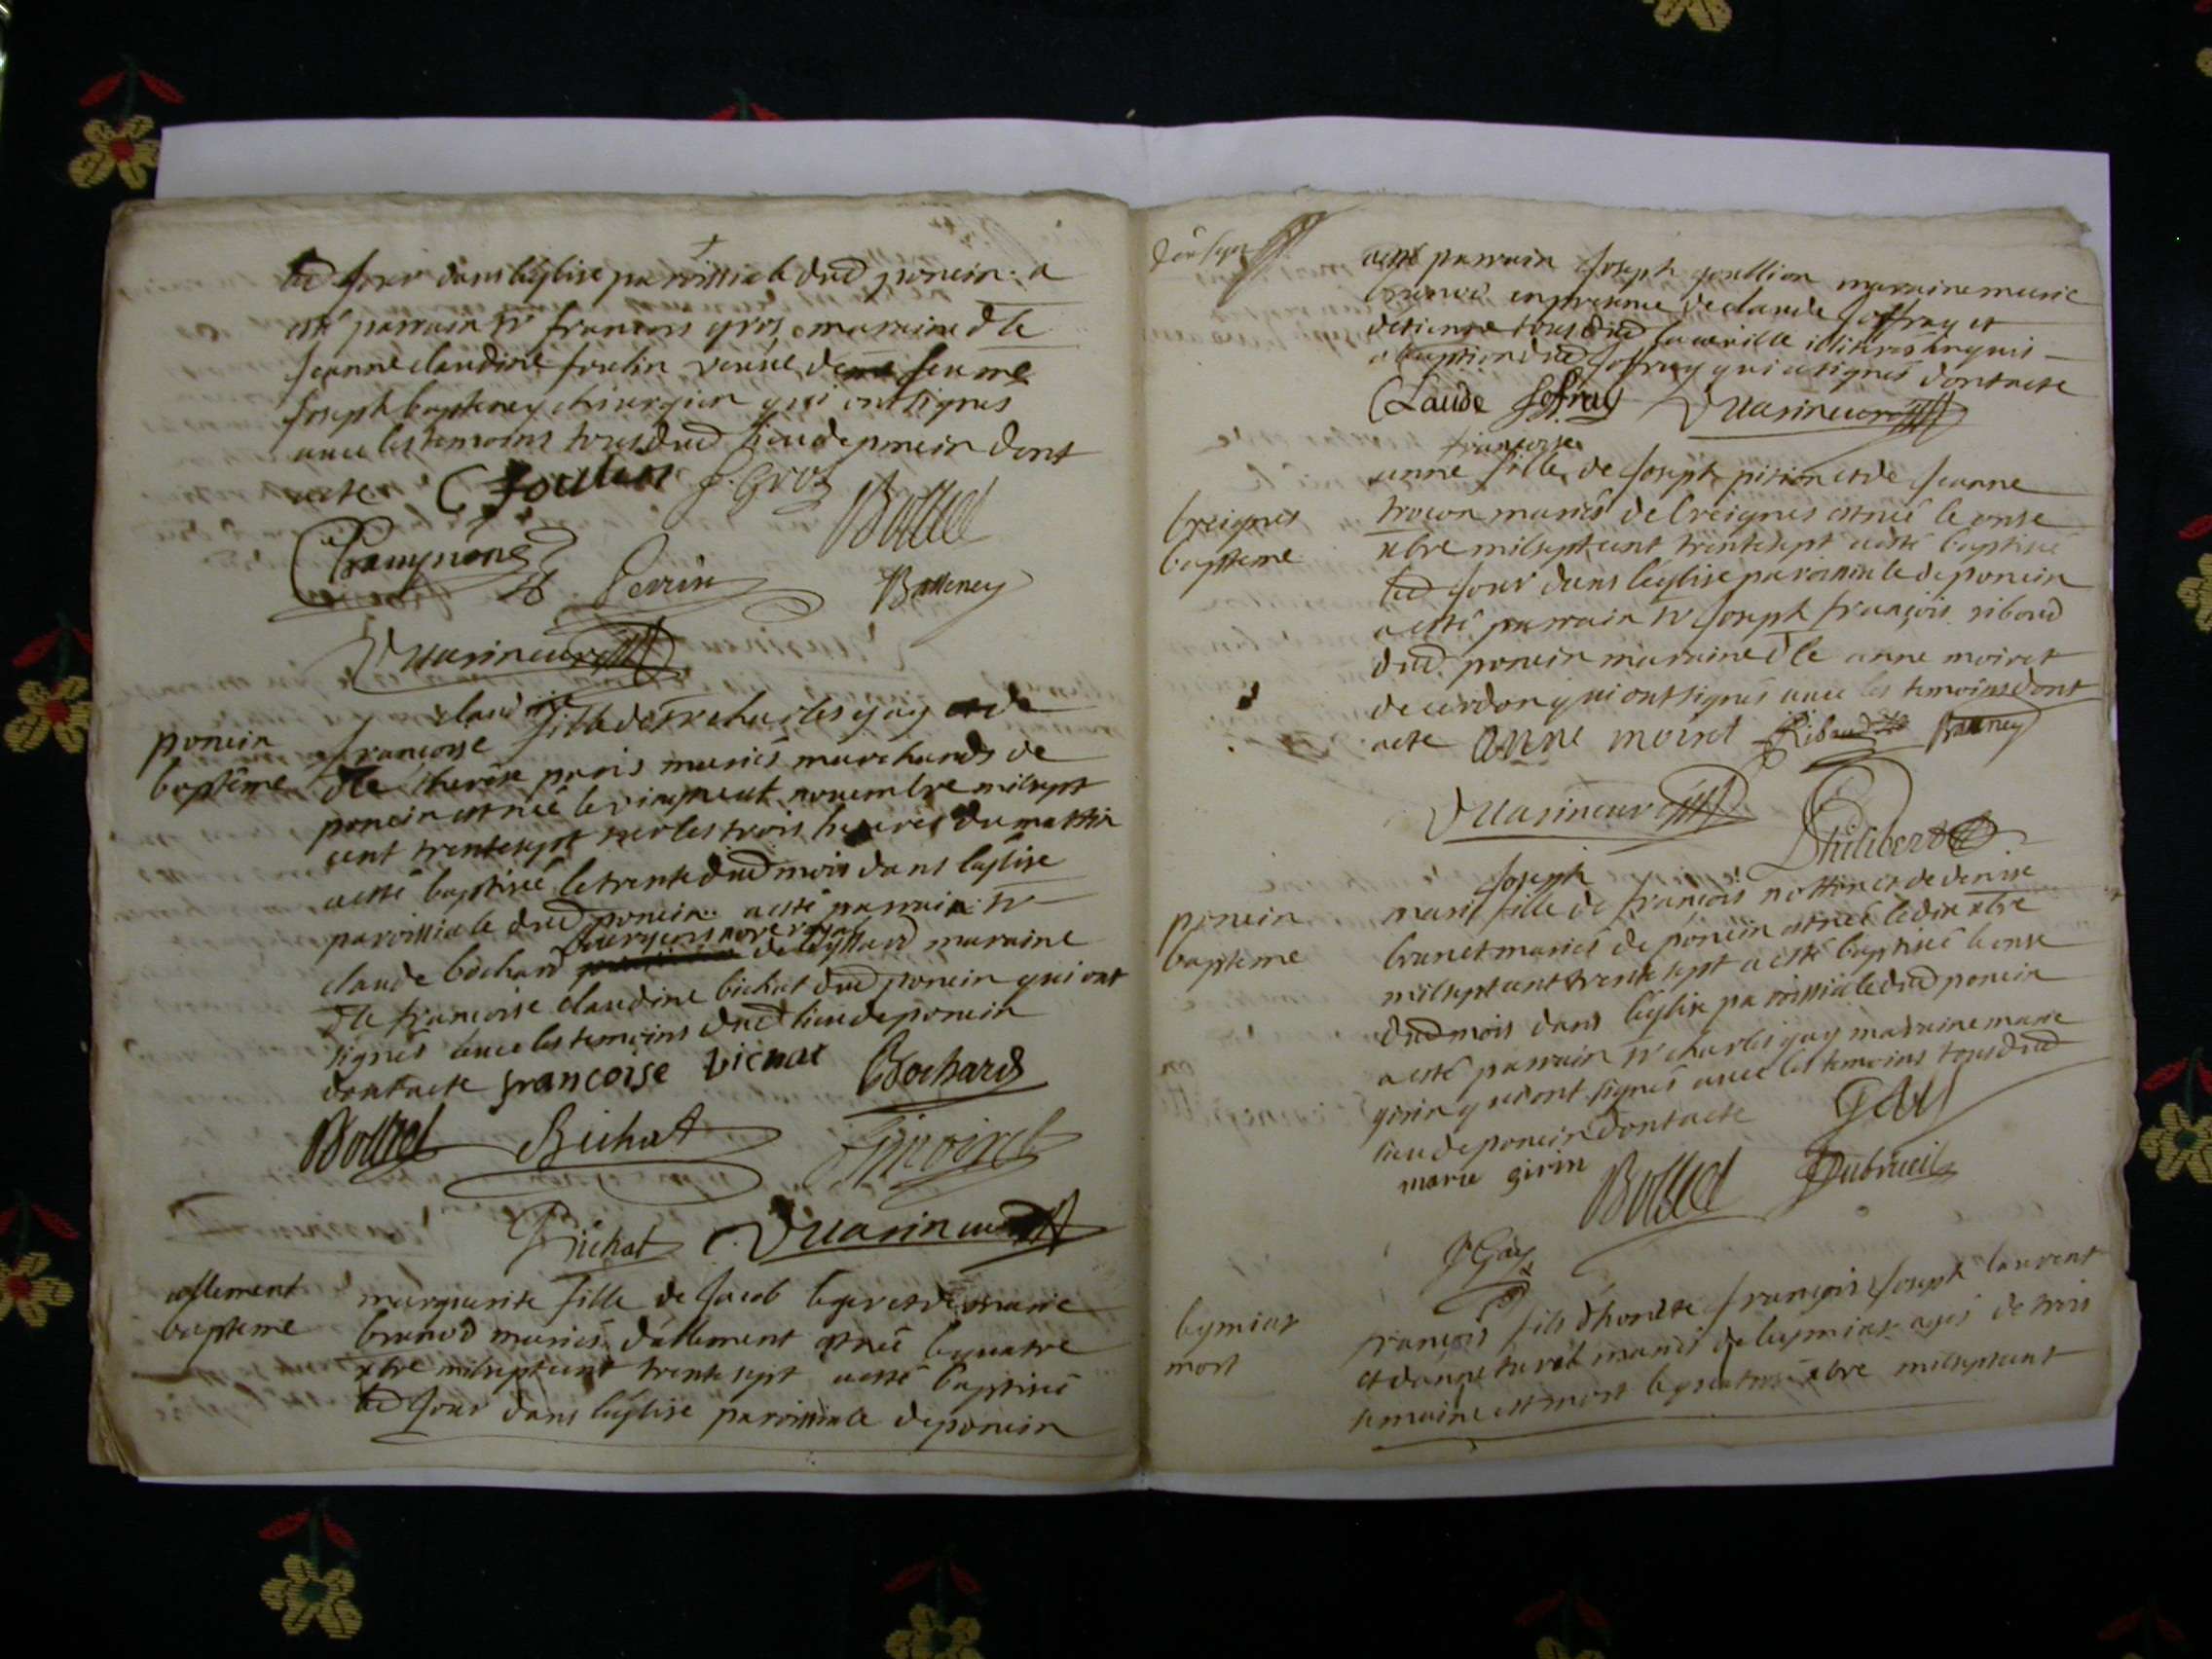 led jour dans léglise paroissiale dud poncin. a
esté parrain sr francois gros maraine dlle
jeanne claudine foulin veuve de feu me
joseph bapteney chirurgien qui ont signes
avec les temoins tous dud lieu de poncin dont
acte C foulin f. Gros Bollied
Champion Perrin Batteney
Vuarineur
poncin
bapteme
claudine
francoise fille de sr charles gay et de
dlle therese paris mariés marchands de
poncin est née le vingneuf novembre milsept
cent trentesept sur les trois heures du mattin
a esté baptisée le trente dud mois dans léglise
paroissiale dud poncin. a esté parrain sr
bourgeois nore royal
claude bochard de leyssard maraine
dlle francoise claudine bichat dud poncin qui ont
signés avec les temoins dud lieu de poncin
dont acte francoise bichat Bochard
Bollied Bichat Moiret
Bichat Vuarineur
allement
bapteme
marguerite fille de jacob leger et de marie
brunod mariés dallement est née le quatre
xbre milseptcent trentesept a esté baptisée
led jour dans léglise paroissiale de poncin
a esté parrain joseph goullion maraine marie
brunod en presence de claude joffray et
detienne tous dud lieu illiteres enquis
a lexception dud joffray qui a signés dont acte
Claude joffray Vuarineur
breignes
bapteme
francoise
anne fille de joseph pition et de jeanne
trocon mariés de breignes est née le onse
xbre milseptcent trentesept a esté baptisée
led jour dans léglise paroissiale de poncin
a esté parrain sr joseph françois riboud
dud poncin maraine dlle anne moiret
de cerdon qui ont signés avec les temoins dont
acte anne moiret Riboud Batteney
Vuarineur Philibert
poncin
bapteme
joseph
marie fille de françois nottion et de denise
brunet mariés de poncin est née le dix xbre
milseptcent trente sept a esté baptisée le onse
dud mois dans léglise paroissiale dud poncin
a esté parrain sr charles gay maraine marie
girin qui ont signés avec les temoins tous dud
lieu de poncin dont acte GAY
marie girin Bollied Dubrueil
J Gay
leymiat
mort
françois fils dhoneste françois joseph laurent
et danne mariés de leymiat agés de trois
semaine est mort le quatre xbre milseptcent